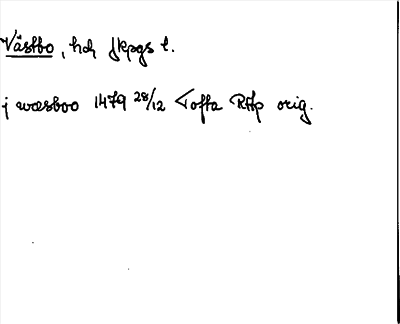 Västbo, hd, Jkpgs l.
j wæsboo 1479 28/12 Tofta RAp orig.